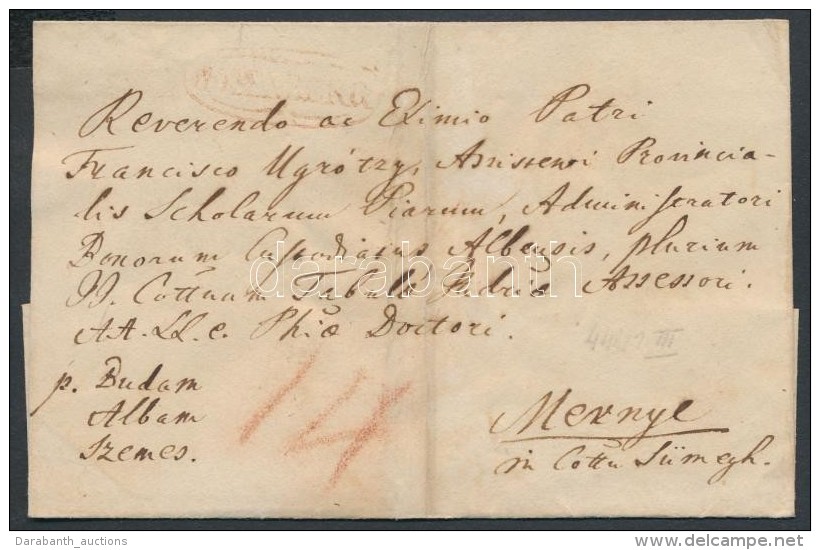 Reverendo ac Eximio Patri
Francisco Ugrótzy, Assistenti Provincia-
lis Scholarum Piarum, Administratori
Bonorum Custodiatus Albensis, plurium
II. Cottuum Tabulæ Judriæ Assessori.
AA. LL. e. Phiæ Doctori.
p. Budam
Albam
Szemes.
14
Mernye
in Cottu Sümegh.
darabanth
Darabanth_auctions
www.delcampe.net